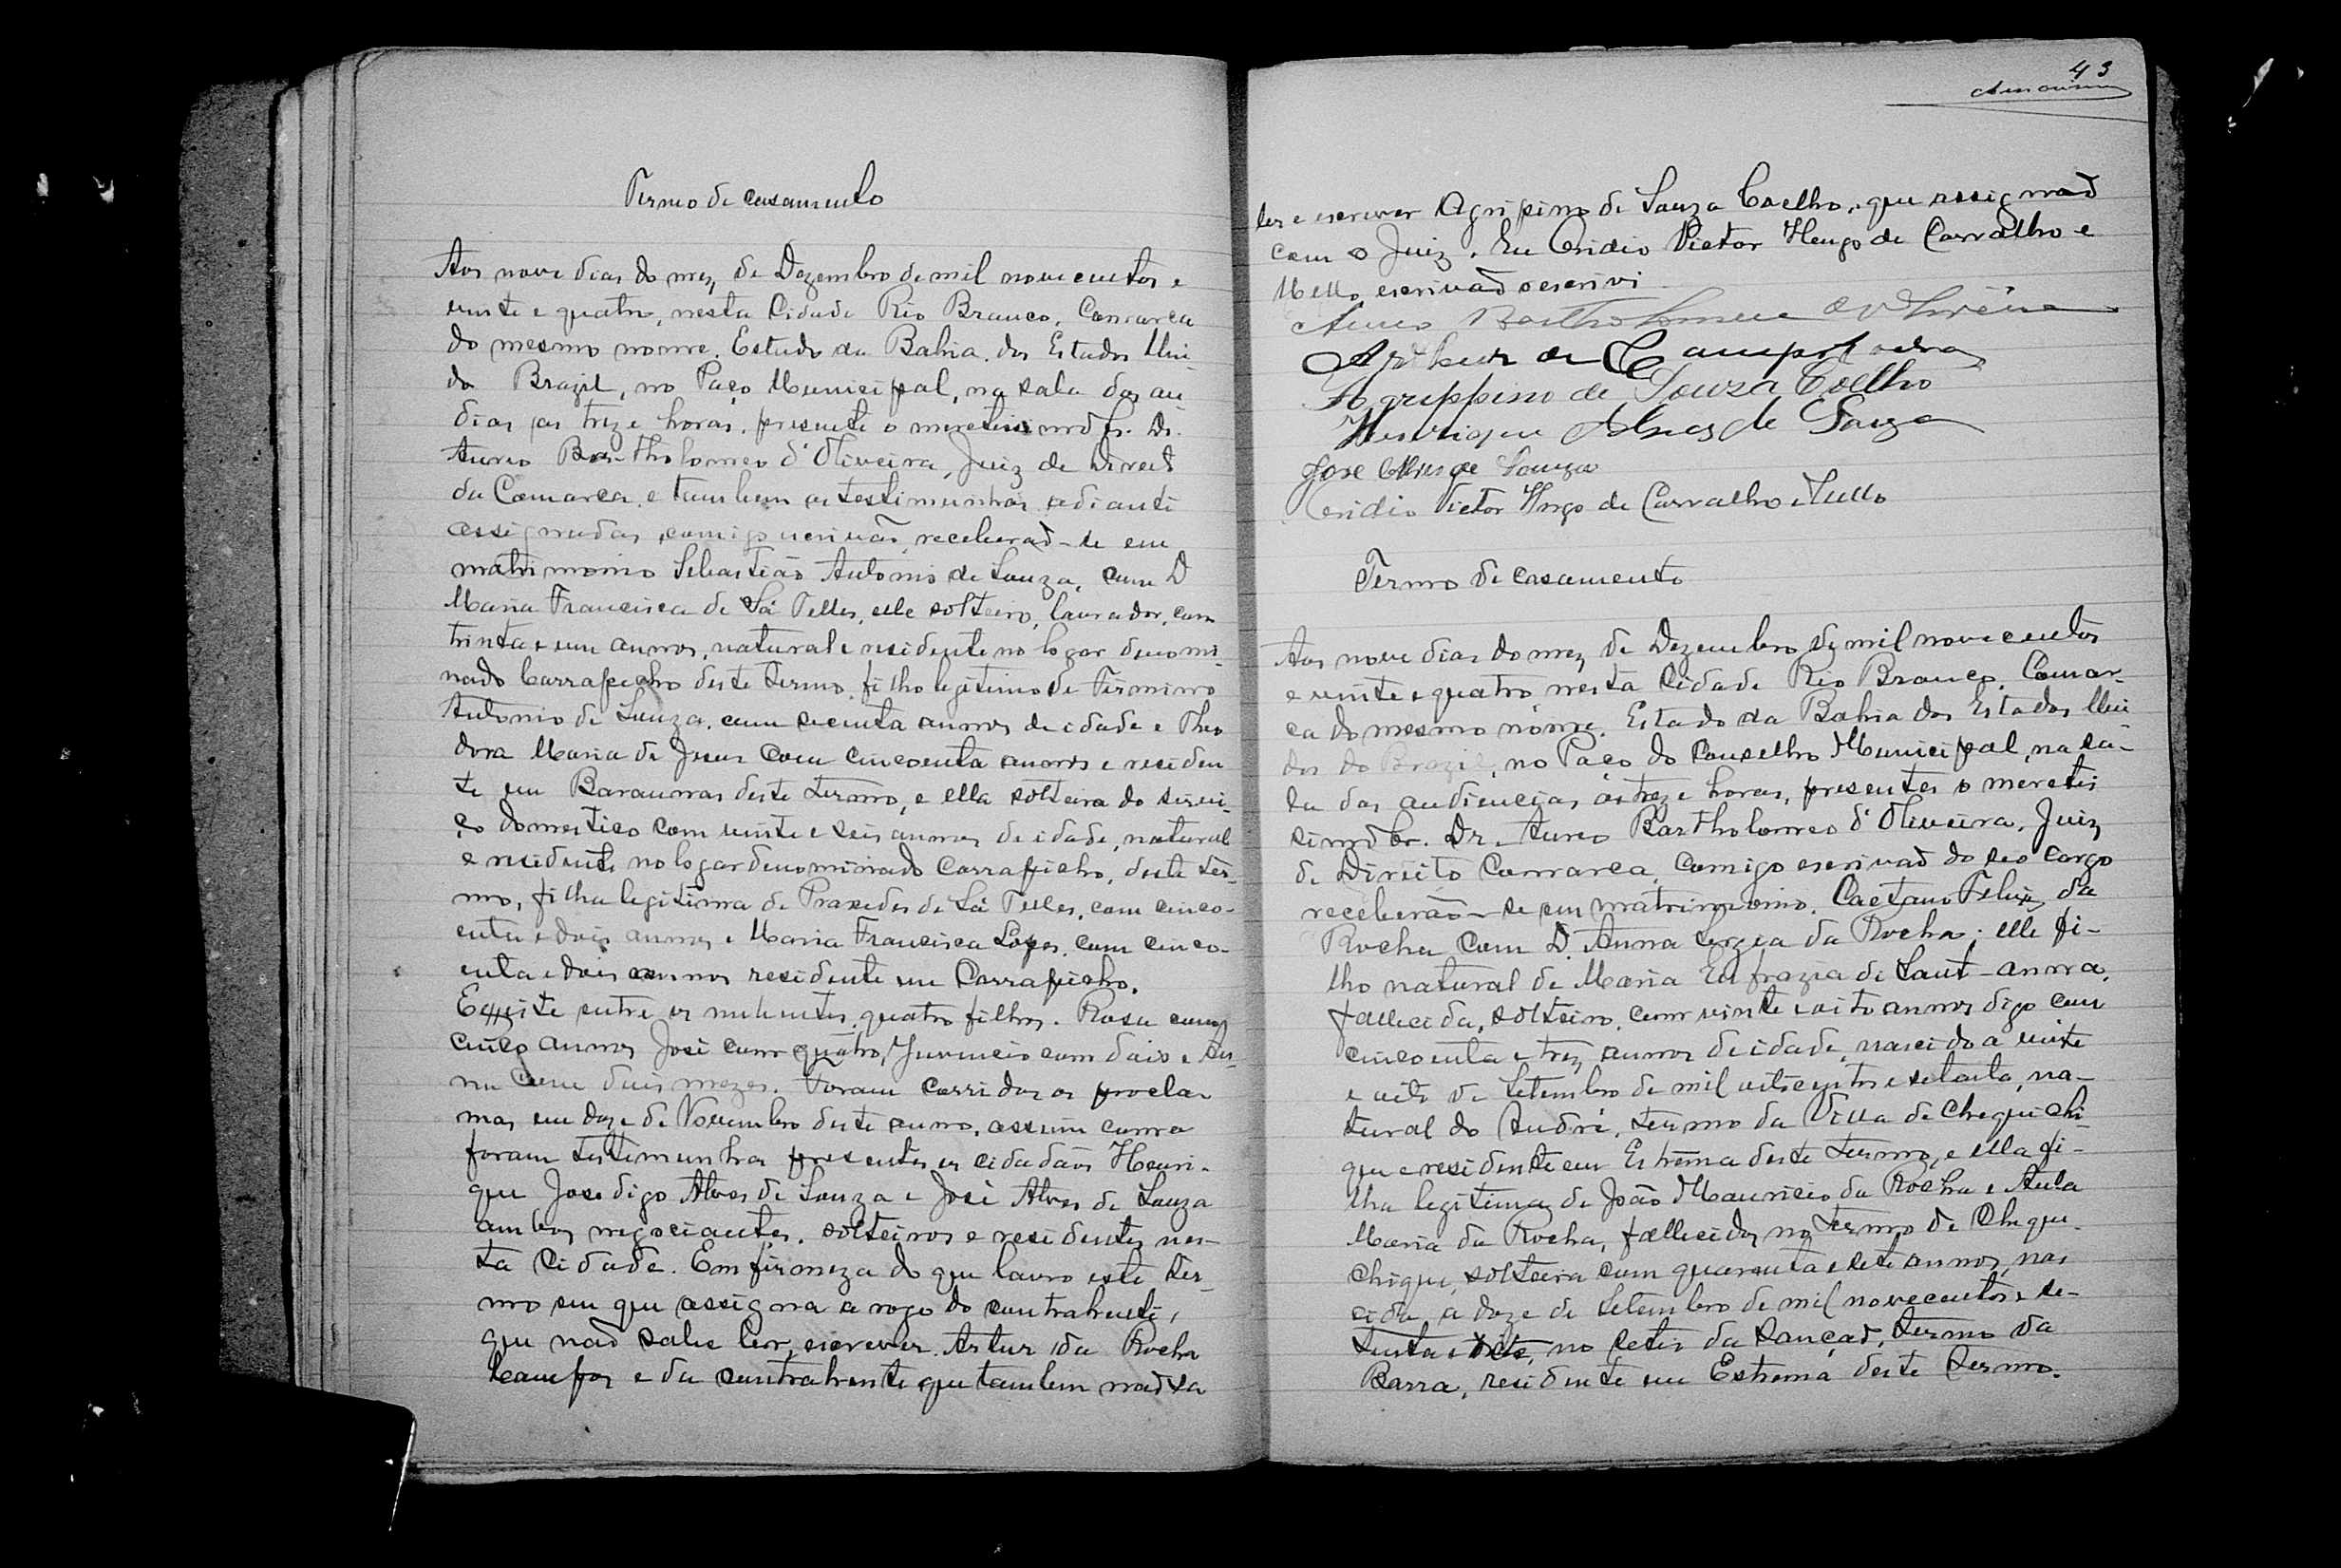 Termo de casamento
Aos nove dias do mez de Dezembro de mil novecentos e
vinte e quatro, nesta Cidade Rio Branco, Comarca
do mesmo nome. Estado da Bahia. dos Estados Uni-
do Brazil, no Paço Municipal, na sala das au-
dias as treze horas. presente o meretissimo Sr. Dr.
Aureo Bartholomeo d'Oliveira, Juiz de Direito
da Comarca. e tambem as testimunhas adiante
assignadas, comigo escrivão, receberaõ-se em
matrimonio Sebastião Antonio de Souza, com D
Maria Francisca de Sá Telles, elle solteiro, lavrador, com
trinta e um annos, natural e residente no logar denomi-
nado Carrapicho deste termo, filho legitimo de Firmino
Antonio de Souza, com secenta annos de idade e Theo
dora Maria de Jesus com cincoenta annos e residen
te em Baraunas deste termo, e ella solteira do servi-
ço domestico com vinte e seis annos de idade, natural
e residente no logar denominado Carrapicho, deste ter-
mo, filha legitima de Praxedes de Sá Telles, com cinco-
enta e dois annos e Maria Francisca Lopes, com cinco-
enta e dois annos residente em Carrapicho.
Existe entre os nubentes, quatro filhos. Rosa com
cinco annos José com quatro, Juvencio com dois e An-
na com dois mezes. Foram corridos os procla-
mas em doze de Novembro deste anno, assim como
foram testimunhas presentes os cidadãos Henri-
que Jose digo Alves de Souza e José Alves de Souza
ambos negociantes, solteiros e residentes nes-
ta Cidade. Em firmeza do que lavro este ter-
mo em que assigna a rogo do contrahente,
que naõ sabe ler, escrever. Artur da Rocha
Campos e da contrahente que tambem naõ sa
43
ler e escrever Agripino de Souza Coelho, que assignaõ
com o Juiz. Eu Cridio Victor Hugo de Carvalho e
Mello, escrivaõ o escrivi
Aureo Bartholomeu d'Oliveira
Arthur da Campos
Agrippino de Souza Coelho
Henrique Alves de Souza
José Alves de Souza
Victor Hugo de Carvalho e Mello
Termo de casamento
Aos nove dias do mez de Dezembro de mil novecentos
e vinte e quatro, nesta Cidade Rio Branco, Comar-
ca do mesmo nome. Estado da Bahia dos Estados Uni
dos do Brazil, no Paço do Conselho Municipal, na sa-
la das audiencias, ás treze horas, presentes o meretis
simo Sr. Dr. Aureo Bartholomeo d'Oliveira, Juiz
de Direito Comarca, comigo escrivaõ do seo cargo
receberão-se em matrimonio, Caetano Felix da
Rocha com D. Anna Sergia da Rocha; elle fi-
lho natural de Maria Eufrazia de Sant-anna,
fallecida, solteiro, com vinte e oito annos digo com
cincoenta e trez annos de idade, nascido a vinte
e oito de Setembro de mil oitocentos e setenta, na-
tural do André, termo da Villa de Chequichi-
que e residente em Estrema deste termo, e ella fi-
lha legitima de João Mauricio da Rocha e Anta
Maria da Rocha, fallecidos no termo de Cheque-
chique, solteira com quarenta e sete annos, nas
cida a doze de Setembro de mil novecentos e se-
tenta e sete, no da Lançaõ, termo da
Barra, residente em Estrema deste termo.